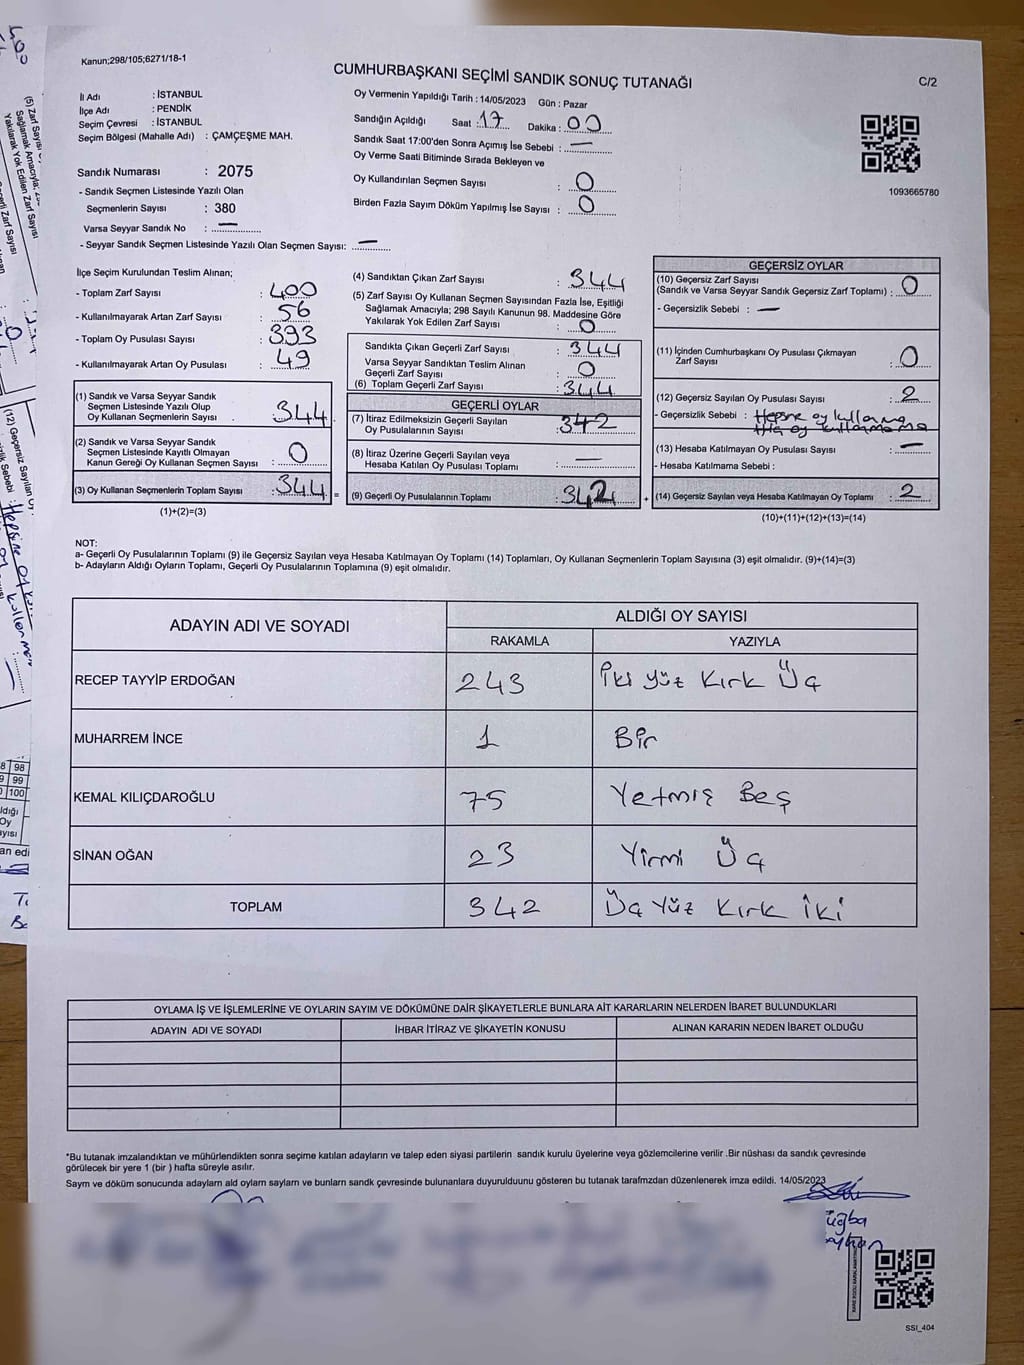 Kanun;298/105;6271/18-1
CUMHURBAŞKANI SEÇİMİ SANDIK SONUÇ TUTANAĞI
C/2
İl Adı : İSTANBUL
İlçe Adı : PENDİK
Seçim Çevresi : İSTANBUL
Seçim Bölgesi (Mahalle Adı) : ÇAMÇEŞME MAH.
Sandık Numarası : 2075
- Sandık Seçmen Listesinde Yazılı Olan
Seçmenlerin Sayısı : 380
Varsa Seyyar Sandık No : —
- Seyyar Sandık Seçmen Listesinde Yazılı Olan Seçmen Sayısı: —
Oy Vermenin Yapıldığı Tarih : 14/05/2023 Gün : Pazar
Sandığın Açıldığı Saat : 17 Dakika : 00
Sandık Saat 17:00'den Sonra Açımış İse Sebebi : —
Oy Verme Saati Bitiminde Sırada Bekleyen ve
Oy Kullandırılan Seçmen Sayısı : 0
Birden Fazla Sayım Döküm Yapılmış İse Sayısı : 0
1093665780
İlçe Seçim Kurulundan Teslim Alınan;
- Toplam Zarf Sayısı : 400
- Kullanılmayarak Artan Zarf Sayısı : 56
- Toplam Oy Pusulası Sayısı : 393
- Kullanılmayarak Artan Oy Pusulası : 49
(1) Sandık ve Varsa Seyyar Sandık
Seçmen Listesinde Yazılı Olup
Oy Kullanan Seçmenlerin Sayısı : 344
(2) Sandık ve Varsa Seyyar Sandık
Seçmen Listesinde Kayıtlı Olmayan
Kanun Gereği Oy Kullanan Seçmen Sayısı : 0
(3) Oy Kullanan Seçmenlerin Toplam Sayısı : 344 =
(1)+(2)=(3)
(4) Sandıktan Çıkan Zarf Sayısı : 344
(5) Zarf Sayısı Oy Kullanan Seçmen Sayısından Fazla İse, Eşitliği
Sağlamak Amacıyla; 298 Sayılı Kanunun 98. Maddesine Göre
Yakılarak Yok Edilen Zarf Sayısı : 0
Sandıkta Çıkan Geçerli Zarf Sayısı : 344
Varsa Seyyar Sandıktan Teslim Alınan
Geçerli Zarf Sayısı : 0
(6) Toplam Geçerli Zarf Sayısı : 344
GEÇERLİ OYLAR
(7) İtiraz Edilmeksizin Geçerli Sayılan
Oy Pusulalarının Sayısı : 342
(8) İtiraz Üzerine Geçerli Sayılan veya
Hesaba Katılan Oy Pusulası Toplamı : —
(9) Geçerli Oy Pusulalarının Toplamı : 342 +
GEÇERSİZ OYLAR
(10) Geçersiz Zarf Sayısı
(Sandık ve Varsa Seyyar Sandık Geçersiz Zarf Toplamı) : 0
- Geçersizlik Sebebi : —
(11) İçinden Cumhurbaşkanı Oy Pusulası Çıkmayan
Zarf Sayısı : 0
(12) Geçersiz Sayılan Oy Pusulası Sayısı : 2
- Geçersizlik Sebebi : Hepsine oy kullanma
Hiç oy kullanmama
(13) Hesaba Katılmayan Oy Pusulası Sayısı : —
- Hesaba Katılmama Sebebi :
(14) Geçersiz Sayılan veya Hesaba Katılmayan Oy Toplamı : 2
(10)+(11)+(12)+(13)=(14)
NOT:
a- Geçerli Oy Pusulalarının Toplamı (9) ile Geçersiz Sayılan veya Hesaba Katılmayan Oy Toplamı (14) Toplamları, Oy Kullanan Seçmenlerin Toplam Sayısına (3) eşit olmalıdır. (9)+(14)=(3)
b- Adayların Aldığı Oyların Toplamı, Geçerli Oy Pusulalarının Toplamına (9) eşit olmalıdır.
ADAYIN ADI VE SOYADI ALDIĞI OY SAYISI
RAKAMLA YAZIYLA
RECEP TAYYİP ERDOĞAN 243 İki Yüz Kırk Üç
MUHARREM İNCE 1 Bir
KEMAL KILIÇDAROĞLU 75 Yetmiş Beş
SİNAN OĞAN 23 Yirmi Üç
TOPLAM 342 Üç Yüz Kırk İki
OYLAMA İŞ VE İŞLEMLERİNE VE OYLARIN SAYIM VE DÖKÜMÜNE DAİR ŞİKAYETLERLE BUNLARA AİT KARARLARIN NELERDEN İBARET BULUNDUKLARI
ADAYIN ADI VE SOYADI İHBAR İTİRAZ VE ŞİKAYETİN KONUSU ALINAN KARARIN NEDEN İBARET OLDUĞU
*Bu tutanak imzalandıktan ve mühürlendikten sonra seçime katılan adayların ve talep eden siyasi partilerin sandık kurulu üyelerine veya gözlemcilerine verilir .Bir nüshası da sandık çevresinde
görülecek bir yere 1 (bir ) hafta süreyle asılır.
Saym ve döküm sonucunda adaylarn ald oylarn saylarn ve bunlarn sandk çevresinde bulunanlara duyurulduunu gösteren bu tutanak tarafmzdan düzenlenerek imza edildi. 14/05/2023
SSI_404